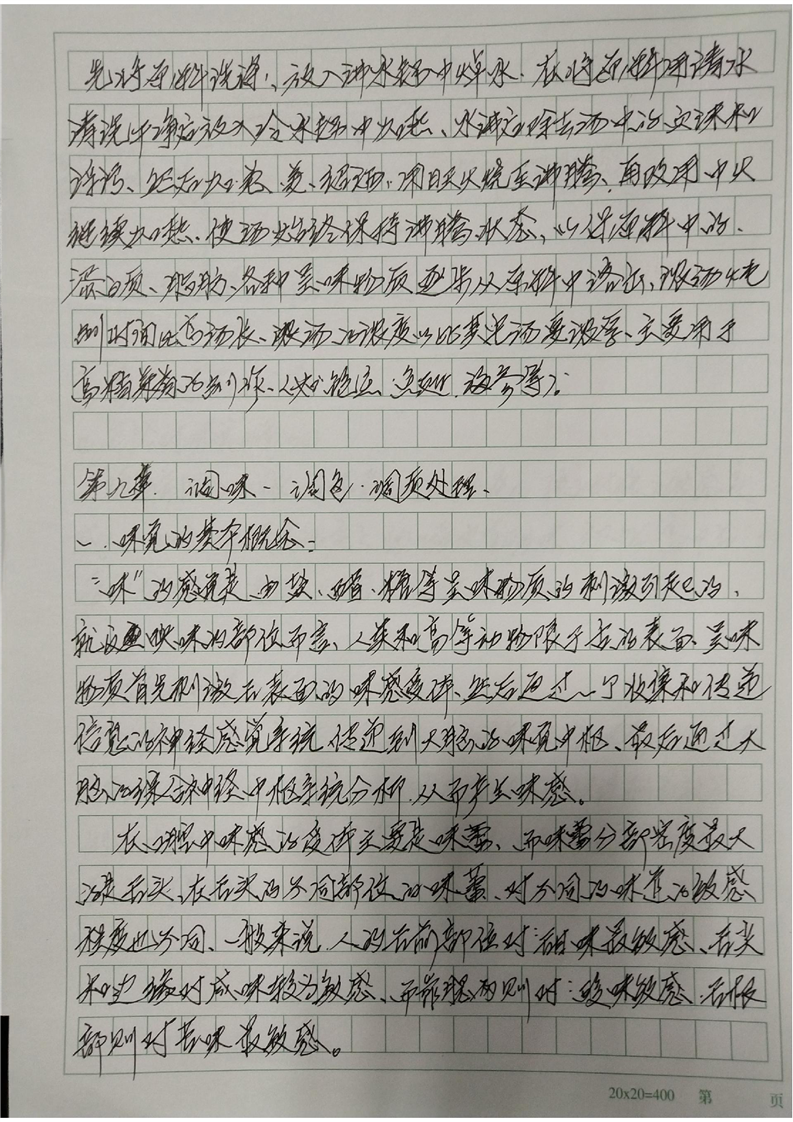 先将原料洗净、放入沸水锅中焯水.在将原料用清水
清洗干净后放入冷水锅中加热、水沸后除去汤中的血沫和
浮污、然后加葱、姜、绍酒、用旺火烧至沸腾、再改用中火
继续加热、使汤始终保持沸腾状态、以保原料中的、
蛋白质、脂肪、各种呈味物质逐步从原料中溶出、浓汤炖
制时间比毛汤长、浓汤的浓度以比其他汤要浓厚、主要用于
高档菜肴的制作、如鲍鱼、鱼肚.海参等。
第九章.调味、调色.调质处理、
一.味觉的基本概念:
“味”的感觉是由盐、醋、糖等呈味物质的刺激引起的、
就反映味的部位而言、人类和高等动物限于舌的表面、呈味
物质首先刺激舌表面的味感受体、然后通过一个收集和传递
信息的神经感觉系统传递到大脑的味觉中枢、最后通过大
脑的综合神经中枢系统分析.从而产生味感。
在口腔中味感的受体主要是味蕾、而味蕾分部密度最大
的是舌头、在舌头的不同部位的味蕾、对不同的味道的敏感
程度也不同、一般来说人的舌前部位对甜味最敏感、舌尖
和边缘对咸味较为敏感、而靠腮两则对酸味敏感.舌根
部则对苦味最敏感。
20x20=400 第 页